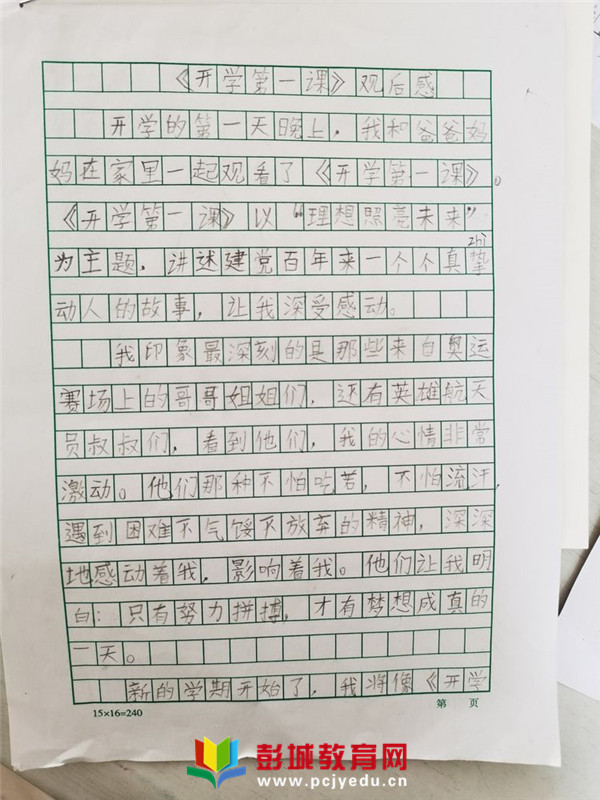 《开学第一课》观后感
开学的第一天晚上，我和爸爸妈
妈在家里一起观看了《开学第一课》。
《开学第一课》以“理想照亮未来”
zhì
为主题，讲述建党百年来一个个真挚
动人的故事，让我深受感动。
我印象最深刻的是那些来自奥运
赛场上的哥哥姐姐们，还有英雄航天
员叔叔们，看到他们，我的心情非常
激动。他们那种不怕吃苦，不怕流汗，
遇到困难不气馁不放弃的精神，深深
地感动着我，影响着我。他们让我明
白：只有努力拼搏，才有梦想成真的
一天。
新的学期开始了，我将像《开学
15×16=240
第 页
彭城教育网
www.pcjyedu.cn